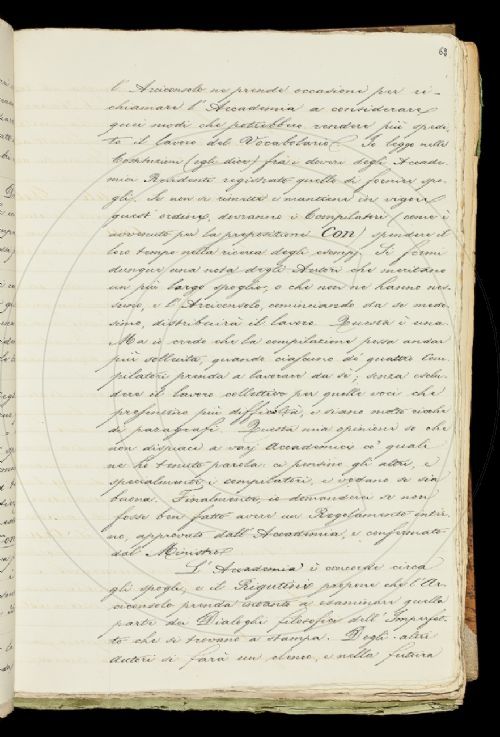 68
l'Arciconsolo ne prende occasione per ri-
chiamare l'Accademia a considerare
quei modi che potrebbero rendere più spedi-
to il lavoro del Vocabolario. Io leggo nelle
Costituzioni (egli dice) fra i doveri degli Accade-
mici Residenti registrato quello di fornire spo-
gli. Se non si rimette e mantiene in vigore
quest'ordine, dovranno i Compilatori (come è
avvenuto per la preposizione CON) spendere il
loro tempo nella ricerca degli esempj. Si formi
dunque una nota degli Autori che meritano
un più largo spoglio, o che non ne hanno nes-
suno, e l'Arciconsolo, cominciando da se mede-
simo, distribuirà il lavoro. Questa è una.
Ma io credo che la compilazione possa andar
più sollecita, quando ciascuno di quattro Com-
pilatori prenda a lavorare da sè; senza esclu-
dere il lavoro collettivo per quelle voci che
profferisino più difficoltà, e siano molto ricche
di paragrafi. Questa mia opinione so che
non dispiace a varj Accademici co' quali
ne ho tenuto parola: ci pensino gli altri, e
specialmente i compilatori, e vedano se sia
buona. Finalmente, io domanderei se non
fosse ben fatto avere un Regolamento inter-
no, approvato dall'Accademia, e confermato
dal Ministro.
L'Accademia è concorde circa
gli spogli, e il Rigutini propone che l'Ar-
ciconsolo prenda intanto a esaminare quella
parte dei Dialoghi filosofici dell'Imperfet-
to che si trovano a stampa. Degli altri
Autori si farà un elenco, e nella futura